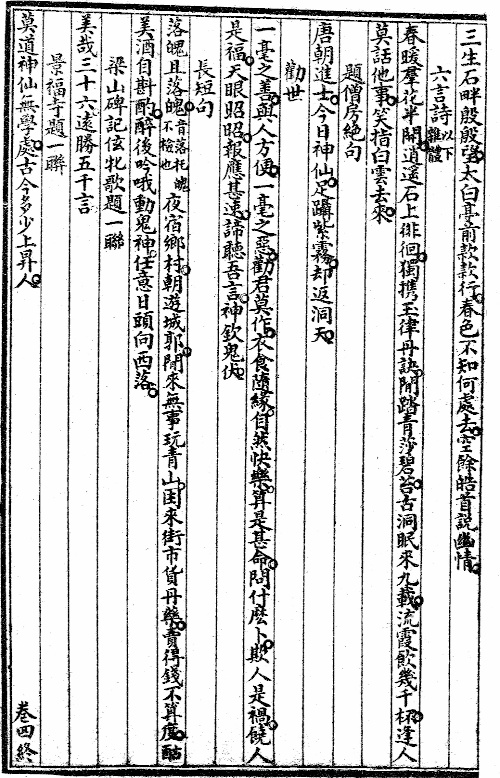 三生石畔殷殷望太白亭前款款行春色不知何處去空餘皓首說幽情
六言詩以下雜體
春暖羣花半開逍遙石上徘徊獨攜玉律丹訣閒踏青莎碧苔古洞眠來九載流霞飲幾千杯逢人
莫話他事笑指白雲去來
題僧房絶句
唐朝進士今日神仙足躡紫霧却返洞天
勸世
一毫之善與人方便一毫之惡勸君莫作衣食隨緣自然快樂算是甚命問什麽卜欺人是禍饒人
是福天眼昭昭報應甚速諦聽吾言神欽鬼伏
長短句
落魄且落魄音落托魄不檢也夜宿鄉村朝遊城郭閒來無事玩青山困來街市貨丹藥賣得錢不算度酤
美酒自斟酌醉後吟哦動鬼神任意日頭向西落
梁山碑記伭牝歌題一聯
美哉三十六遠勝五千言
景福寺題一聯
莫道神仙無學處古今多少上昇人
卷四終